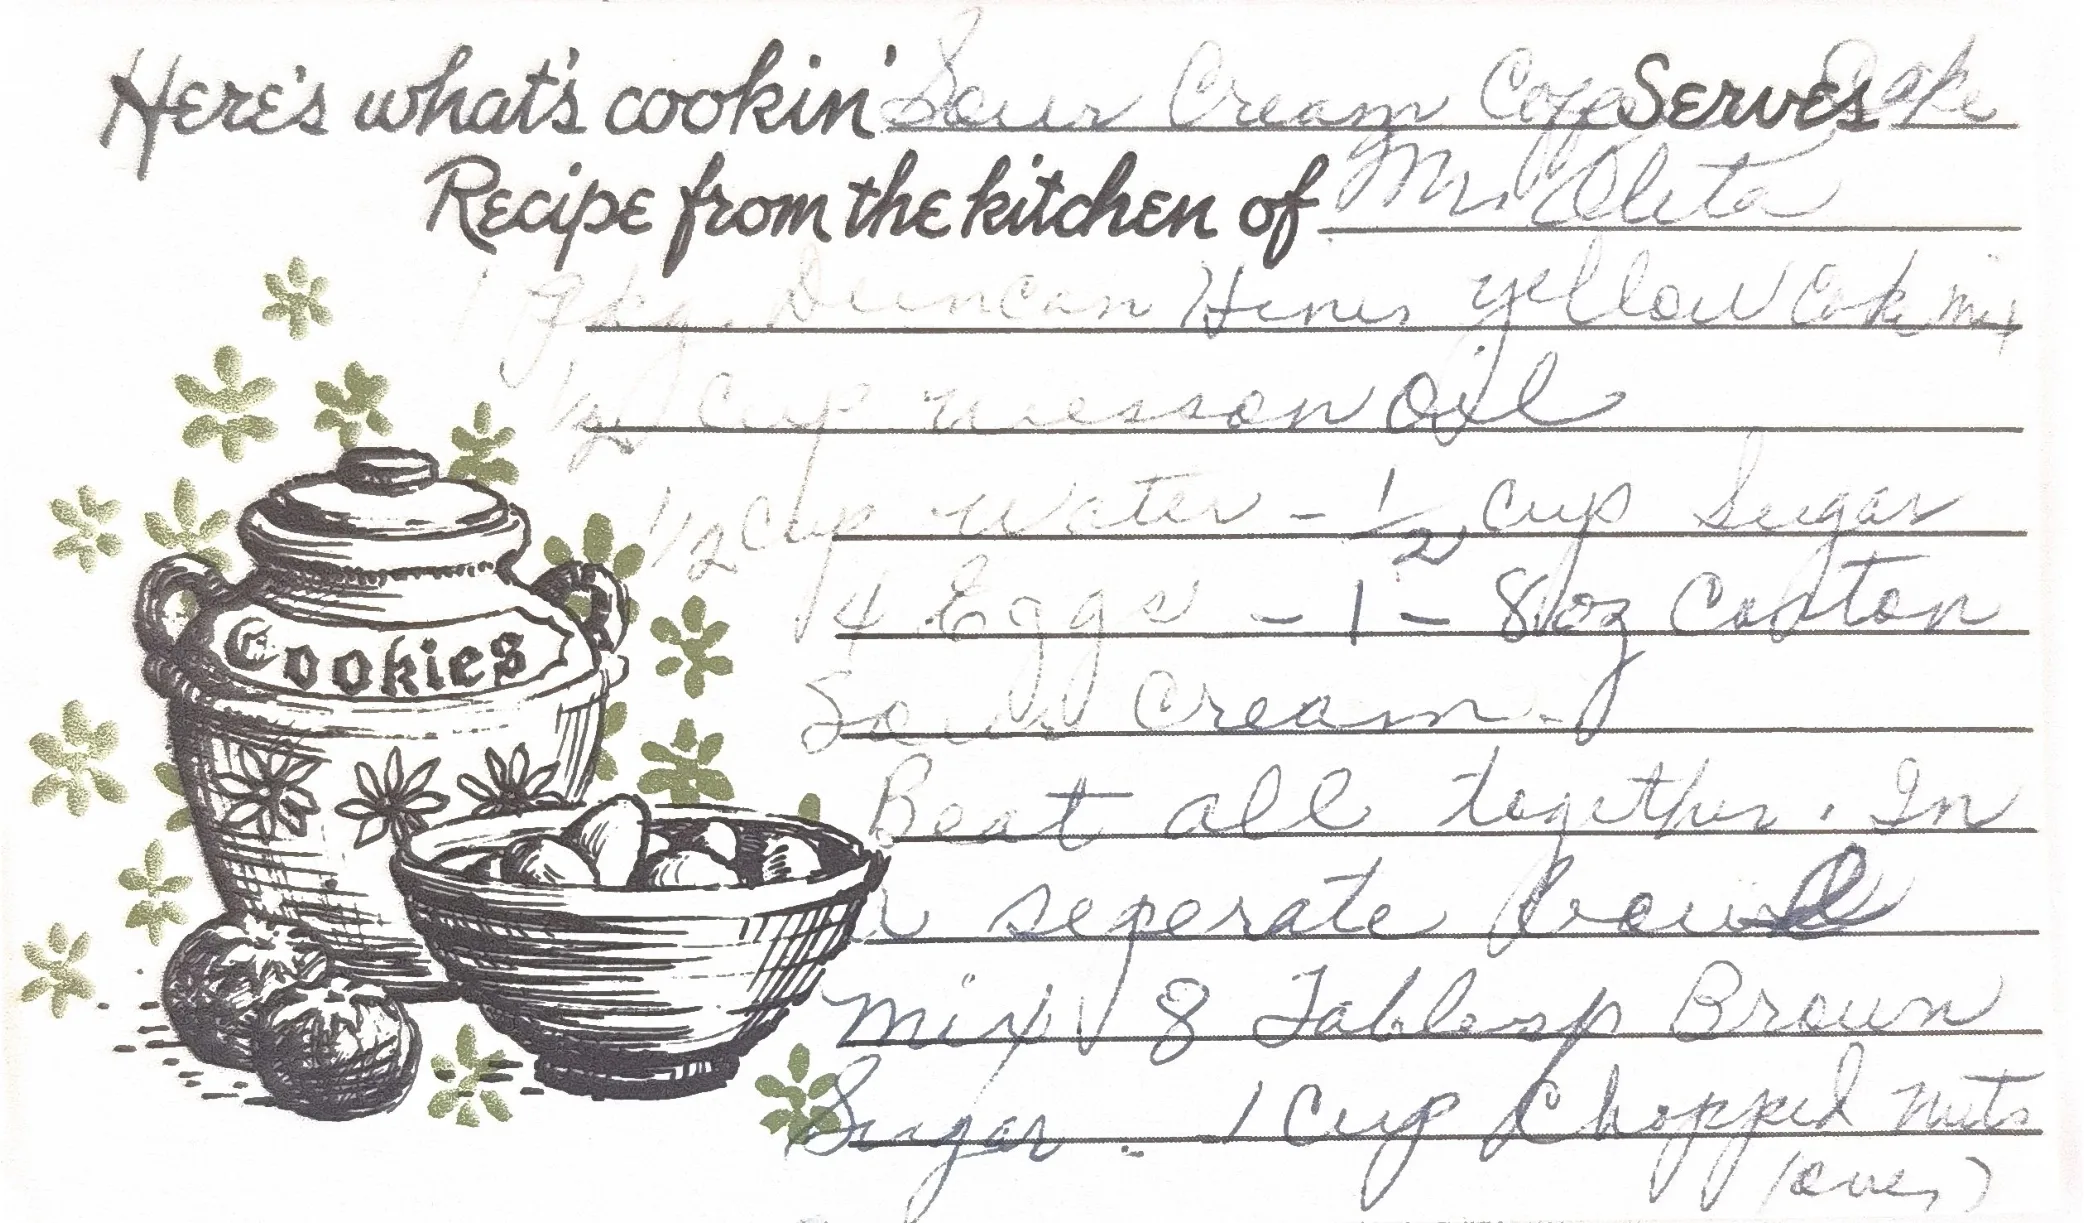 Here's what's cookin' Sour Cream Coffe Serves Cake
Recipe from the kitchen of M. Oleta
1 pkg. Duncan Hines yellow Cake mix
1/2 cup wesson oil
1/2 cup water - 1/2 cup Sugar
4 Eggs - 1 - 8 oz Carton
Sour Cream -
Cookies
Beat all together. In
a seperate bowl
mix 8 Tablesp Brown
Sugar - 1 Cup Chopped nuts
(over)